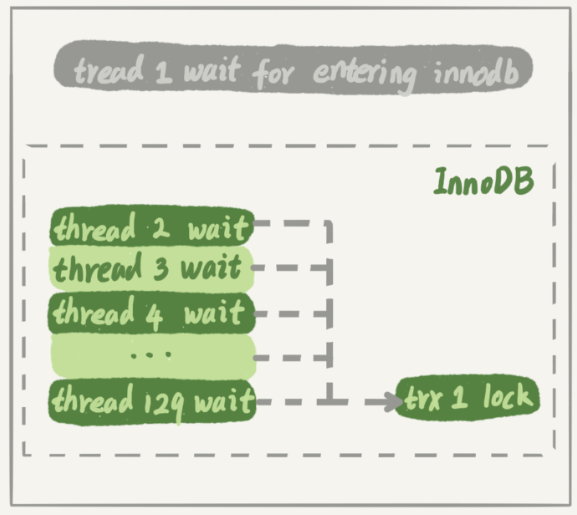 tread 1 wait for entering innodb
InnoDB
thread 2 wait
thread 3 wait
thread 4 wait
...
thread 129 wait
trx 1 lock